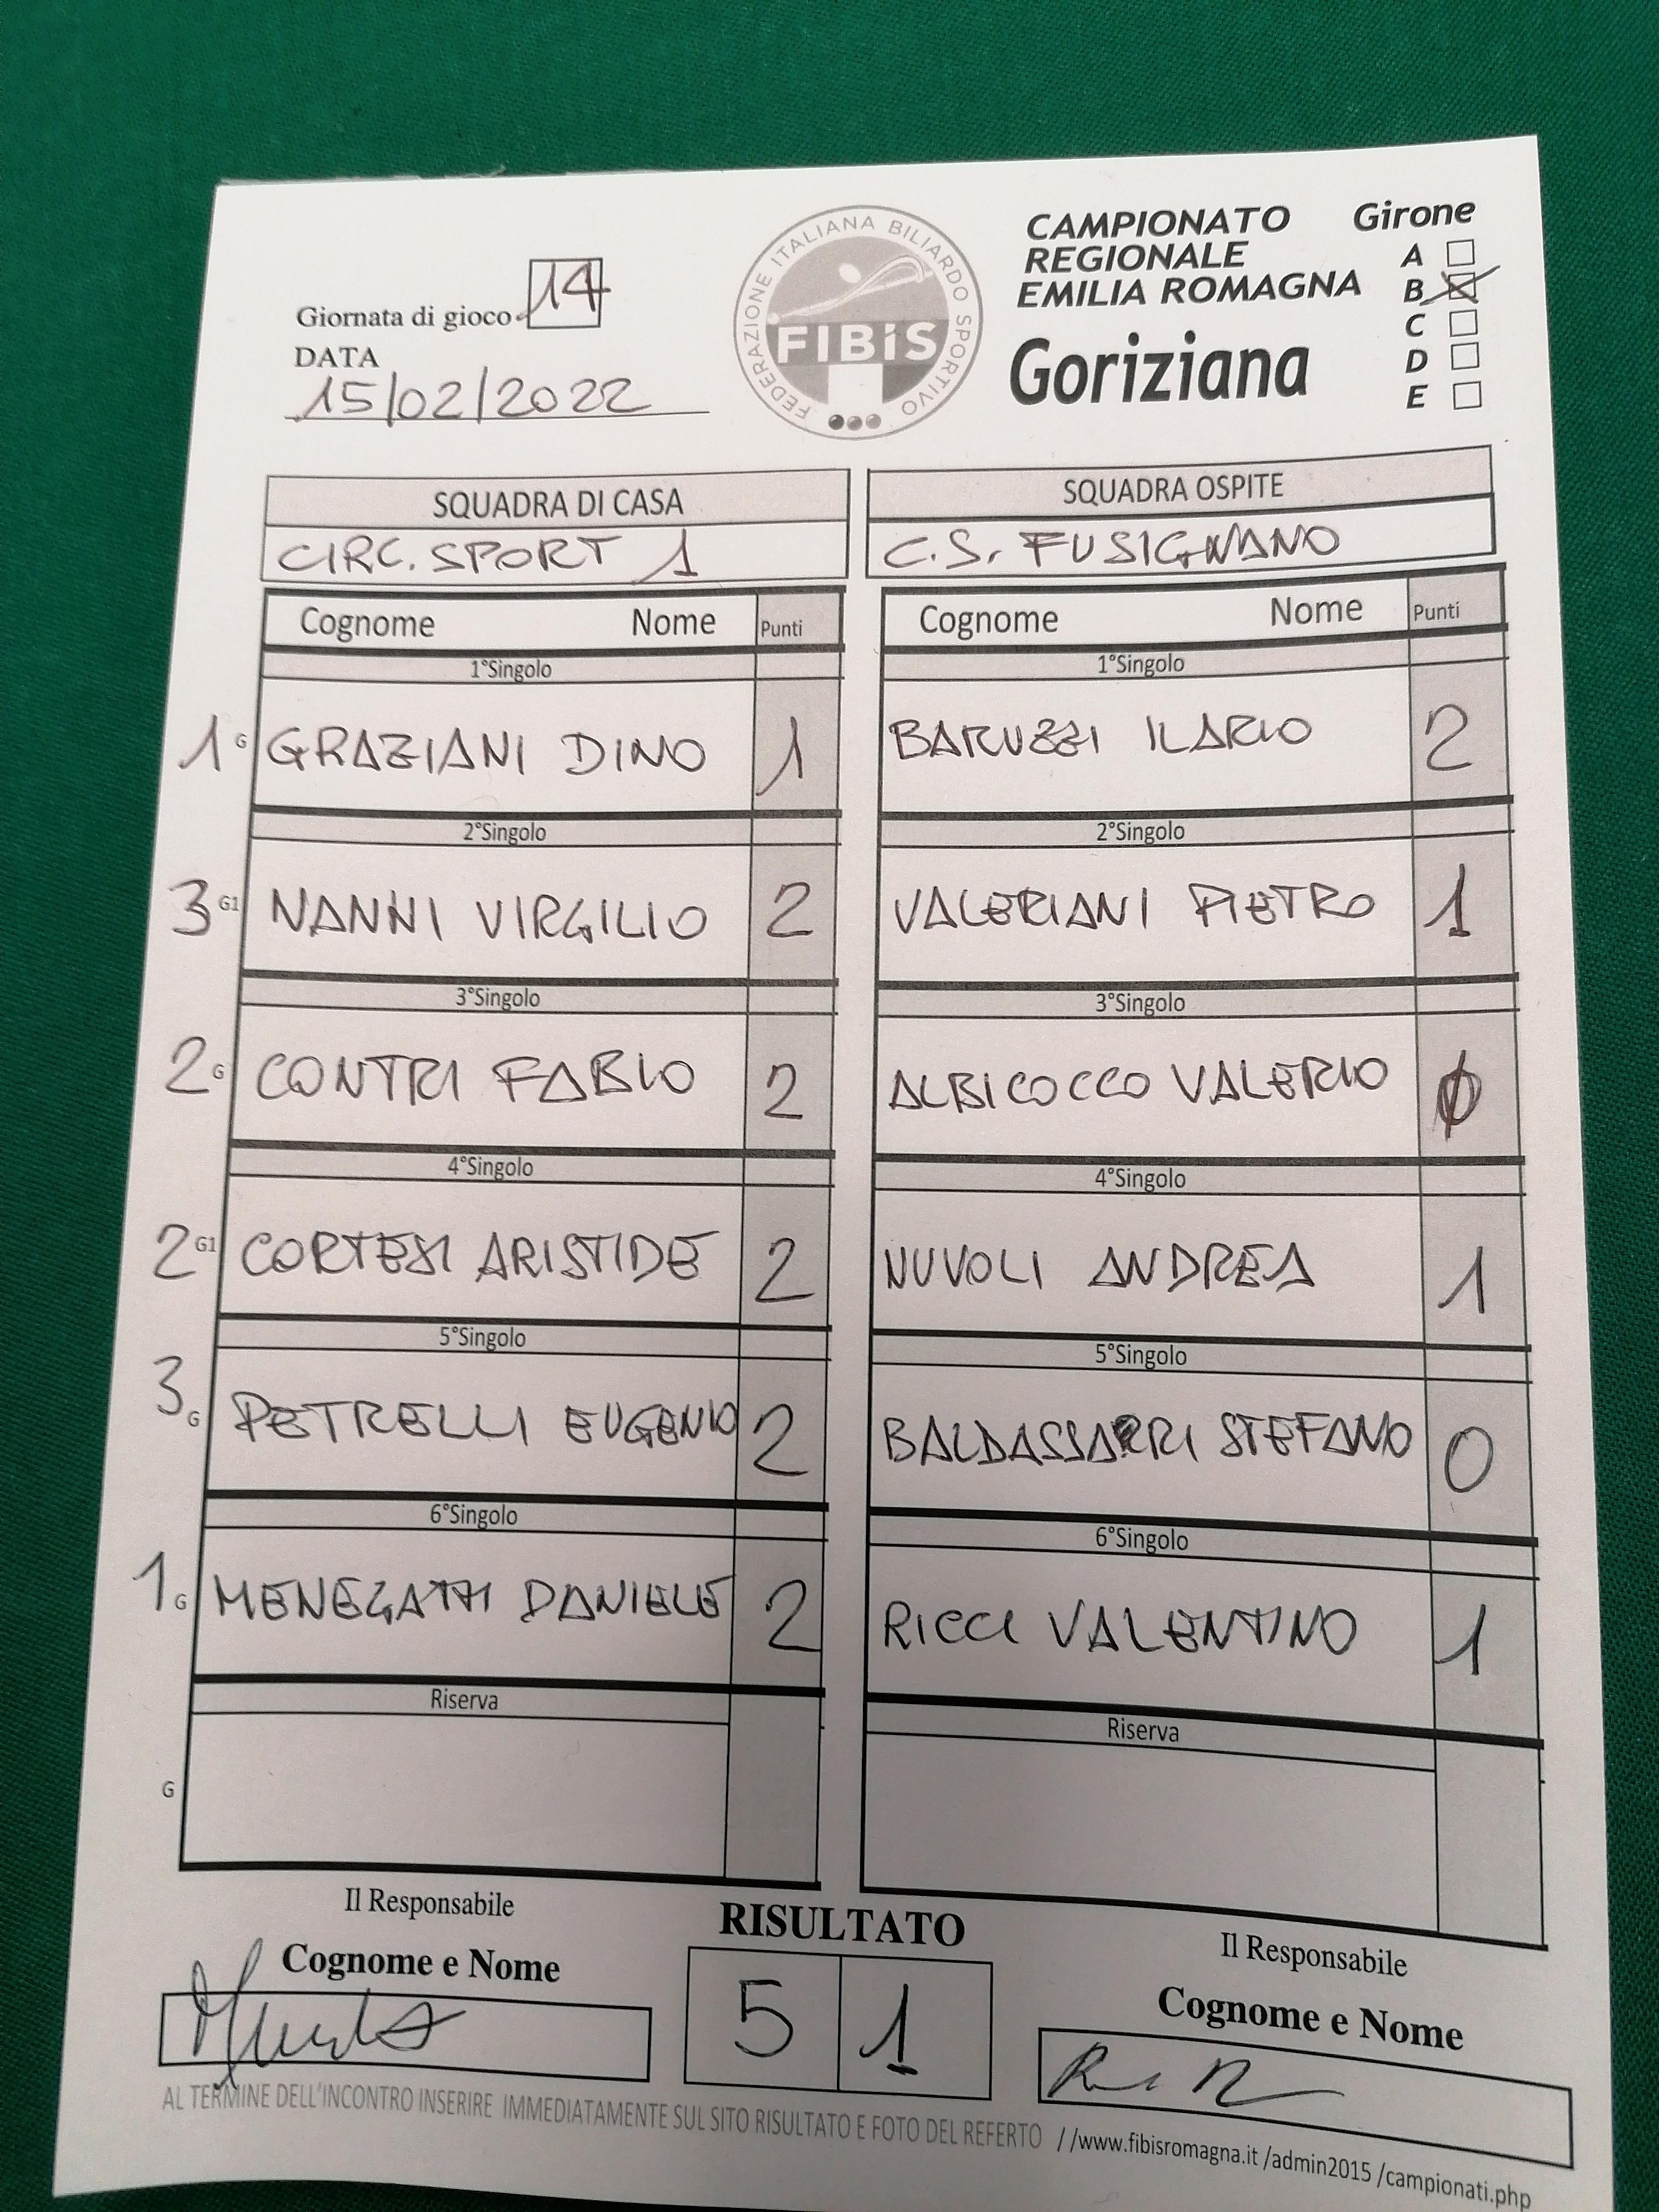 FEDERAZIONE ITALIANA BILIARDO SPORTIVO
FIBiS
CAMPIONATO
REGIONALE
EMILIA ROMAGNA
Goriziana
Girone
A
B
C
D
E
Giornata di gioco 14
DATA
15/02/2022
SQUADRA DI CASA
CIRC. SPORT 1
SQUADRA OSPITE
C.S. FUSIGNANO
Cognome Nome Punti
Cognome Nome Punti
1°Singolo
1°Singolo
1 G GRAZIANI DINO 1
BARUZZI ILARIO 2
2°Singolo
2°Singolo
3 G1 NANNI VIRGILIO 2
VALERIANI PIETRO 1
3°Singolo
3°Singolo
2 G CONTRI FABIO 2
ALBICOCCO VALERIO 0
4°Singolo
4°Singolo
2 G1 CORTESI ARISTIDE 2
NUVOLI ANDREA 1
5°Singolo
5°Singolo
3 G PETRELLI EUGENIO 2
BALDASSARRI STEFANO 0
6°Singolo
6°Singolo
1 G MENEGATTI DANIELE 2
RICCI VALENTINO 1
Riserva
Riserva
G
Il Responsabile
Cognome e Nome
RISULTATO
5 1
Il Responsabile
Cognome e Nome
AL TERMINE DELL'INCONTRO INSERIRE IMMEDIATAMENTE SUL SITO RISULTATO E FOTO DEL REFERTO //www.fibisromagna.it /admin2015 /campionati.php